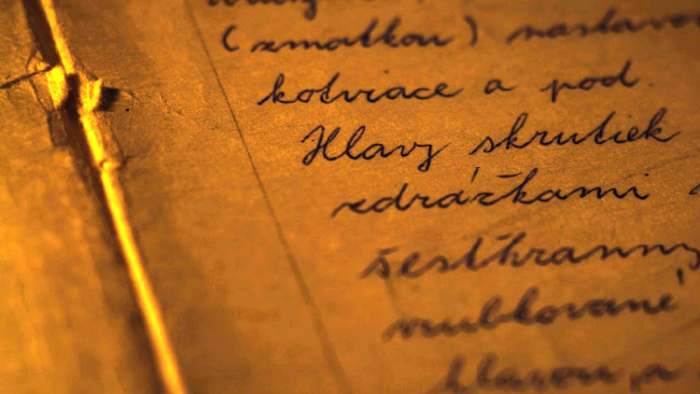 (zmatkou) nastavo
kotviace a pod.
Hlavy skrutiek
zdrážkami
šesthranny
vrubkované
hlavou, a